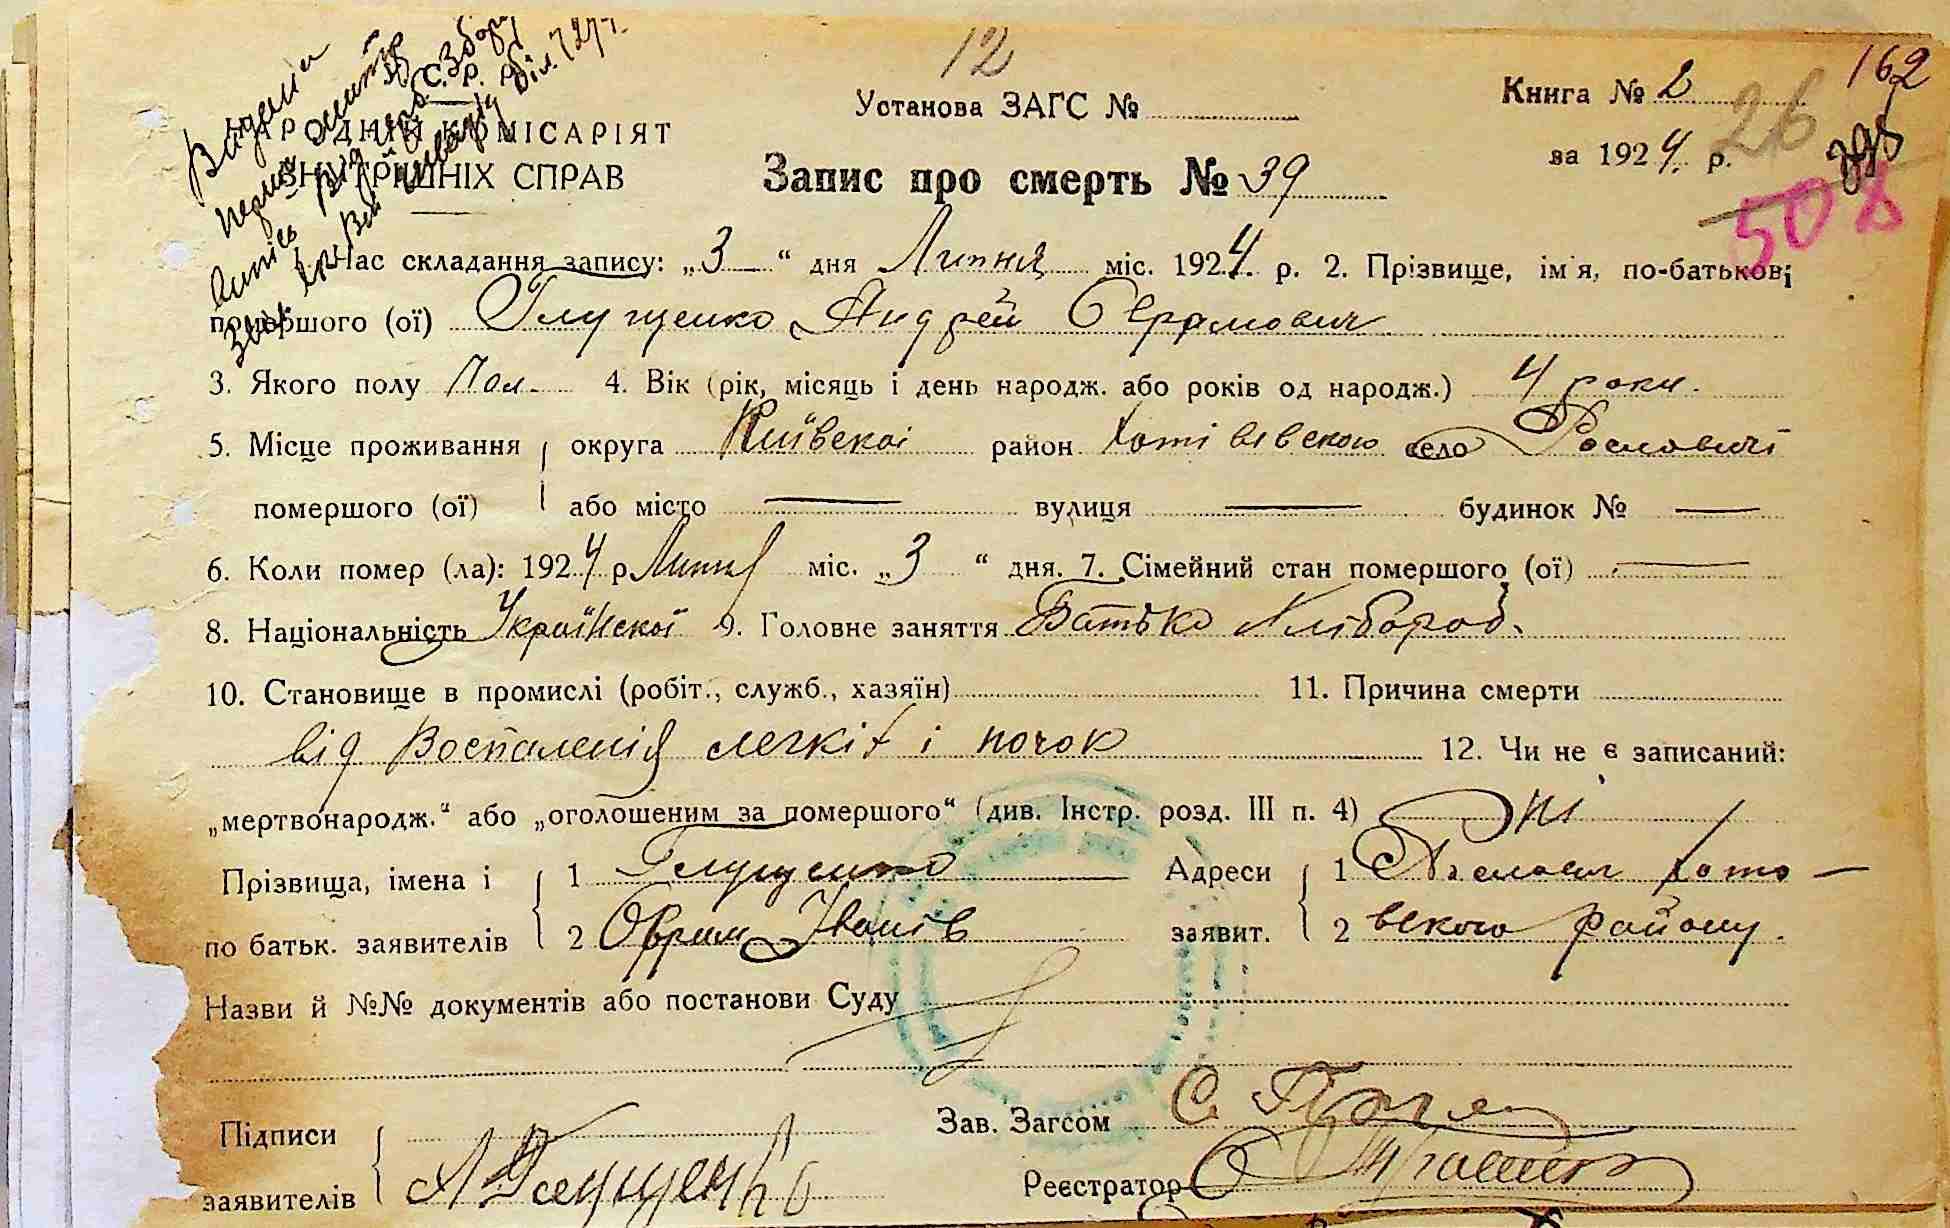 12
162
Установа ЗАГС №
Книга № 2
26
У. С. Р. Р.
НАРОДНІЙ КОМІСАРІЯТ
ВНУТРІШНІХ СПРАВ
за 1924 р.
Запис про смерть № 39
508
1. Час складання запису: „3“ дня Липня міс. 1924 р. 2. Прізвище, ім'я, по-батькові
помершого (ої) Глущенко Андрей Оврамович
3. Якого полу Чол. 4. Вік (рік, місяць і день народж. або років од народж.) 4 роки.
5. Місце проживання округа Київскої район Хотівского село Рословичі
помершого (ої) або місто — вулиця — будинок № —
6. Коли помер (ла): 1924 р Липня міс. „3“ дня. 7. Сімейний стан помершого (ої) —
8. Національність Українскої 9. Головне заняття Батько Хлібороб.
10. Становище в промислі (робіт., служб., хазяїн) 11. Причина смерти
від Воспаленія легкіх і почок 12. Чи не є записаний:
„мертвонародж.“ або „оголошеним за помершого“ (див. Інстр. розд. III п. 4) Ні
Прізвища, імена і 1 Глущенко Адреси 1
по батьк. заявителів 2 Оврам Іванів заявит. 2 вского району.
Назви й №№ документів або постанови Суду
Підписи Зав. Загсом
заявителів А Глущенко Реєстратор